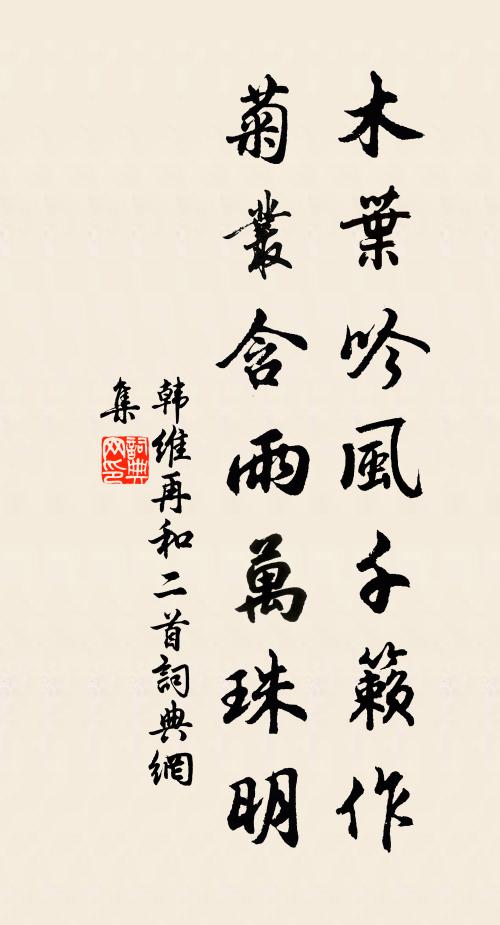 木葉吟風千籟作
菊叢含雨萬珠明
韩維再和二首詞典網
集
詞典网印